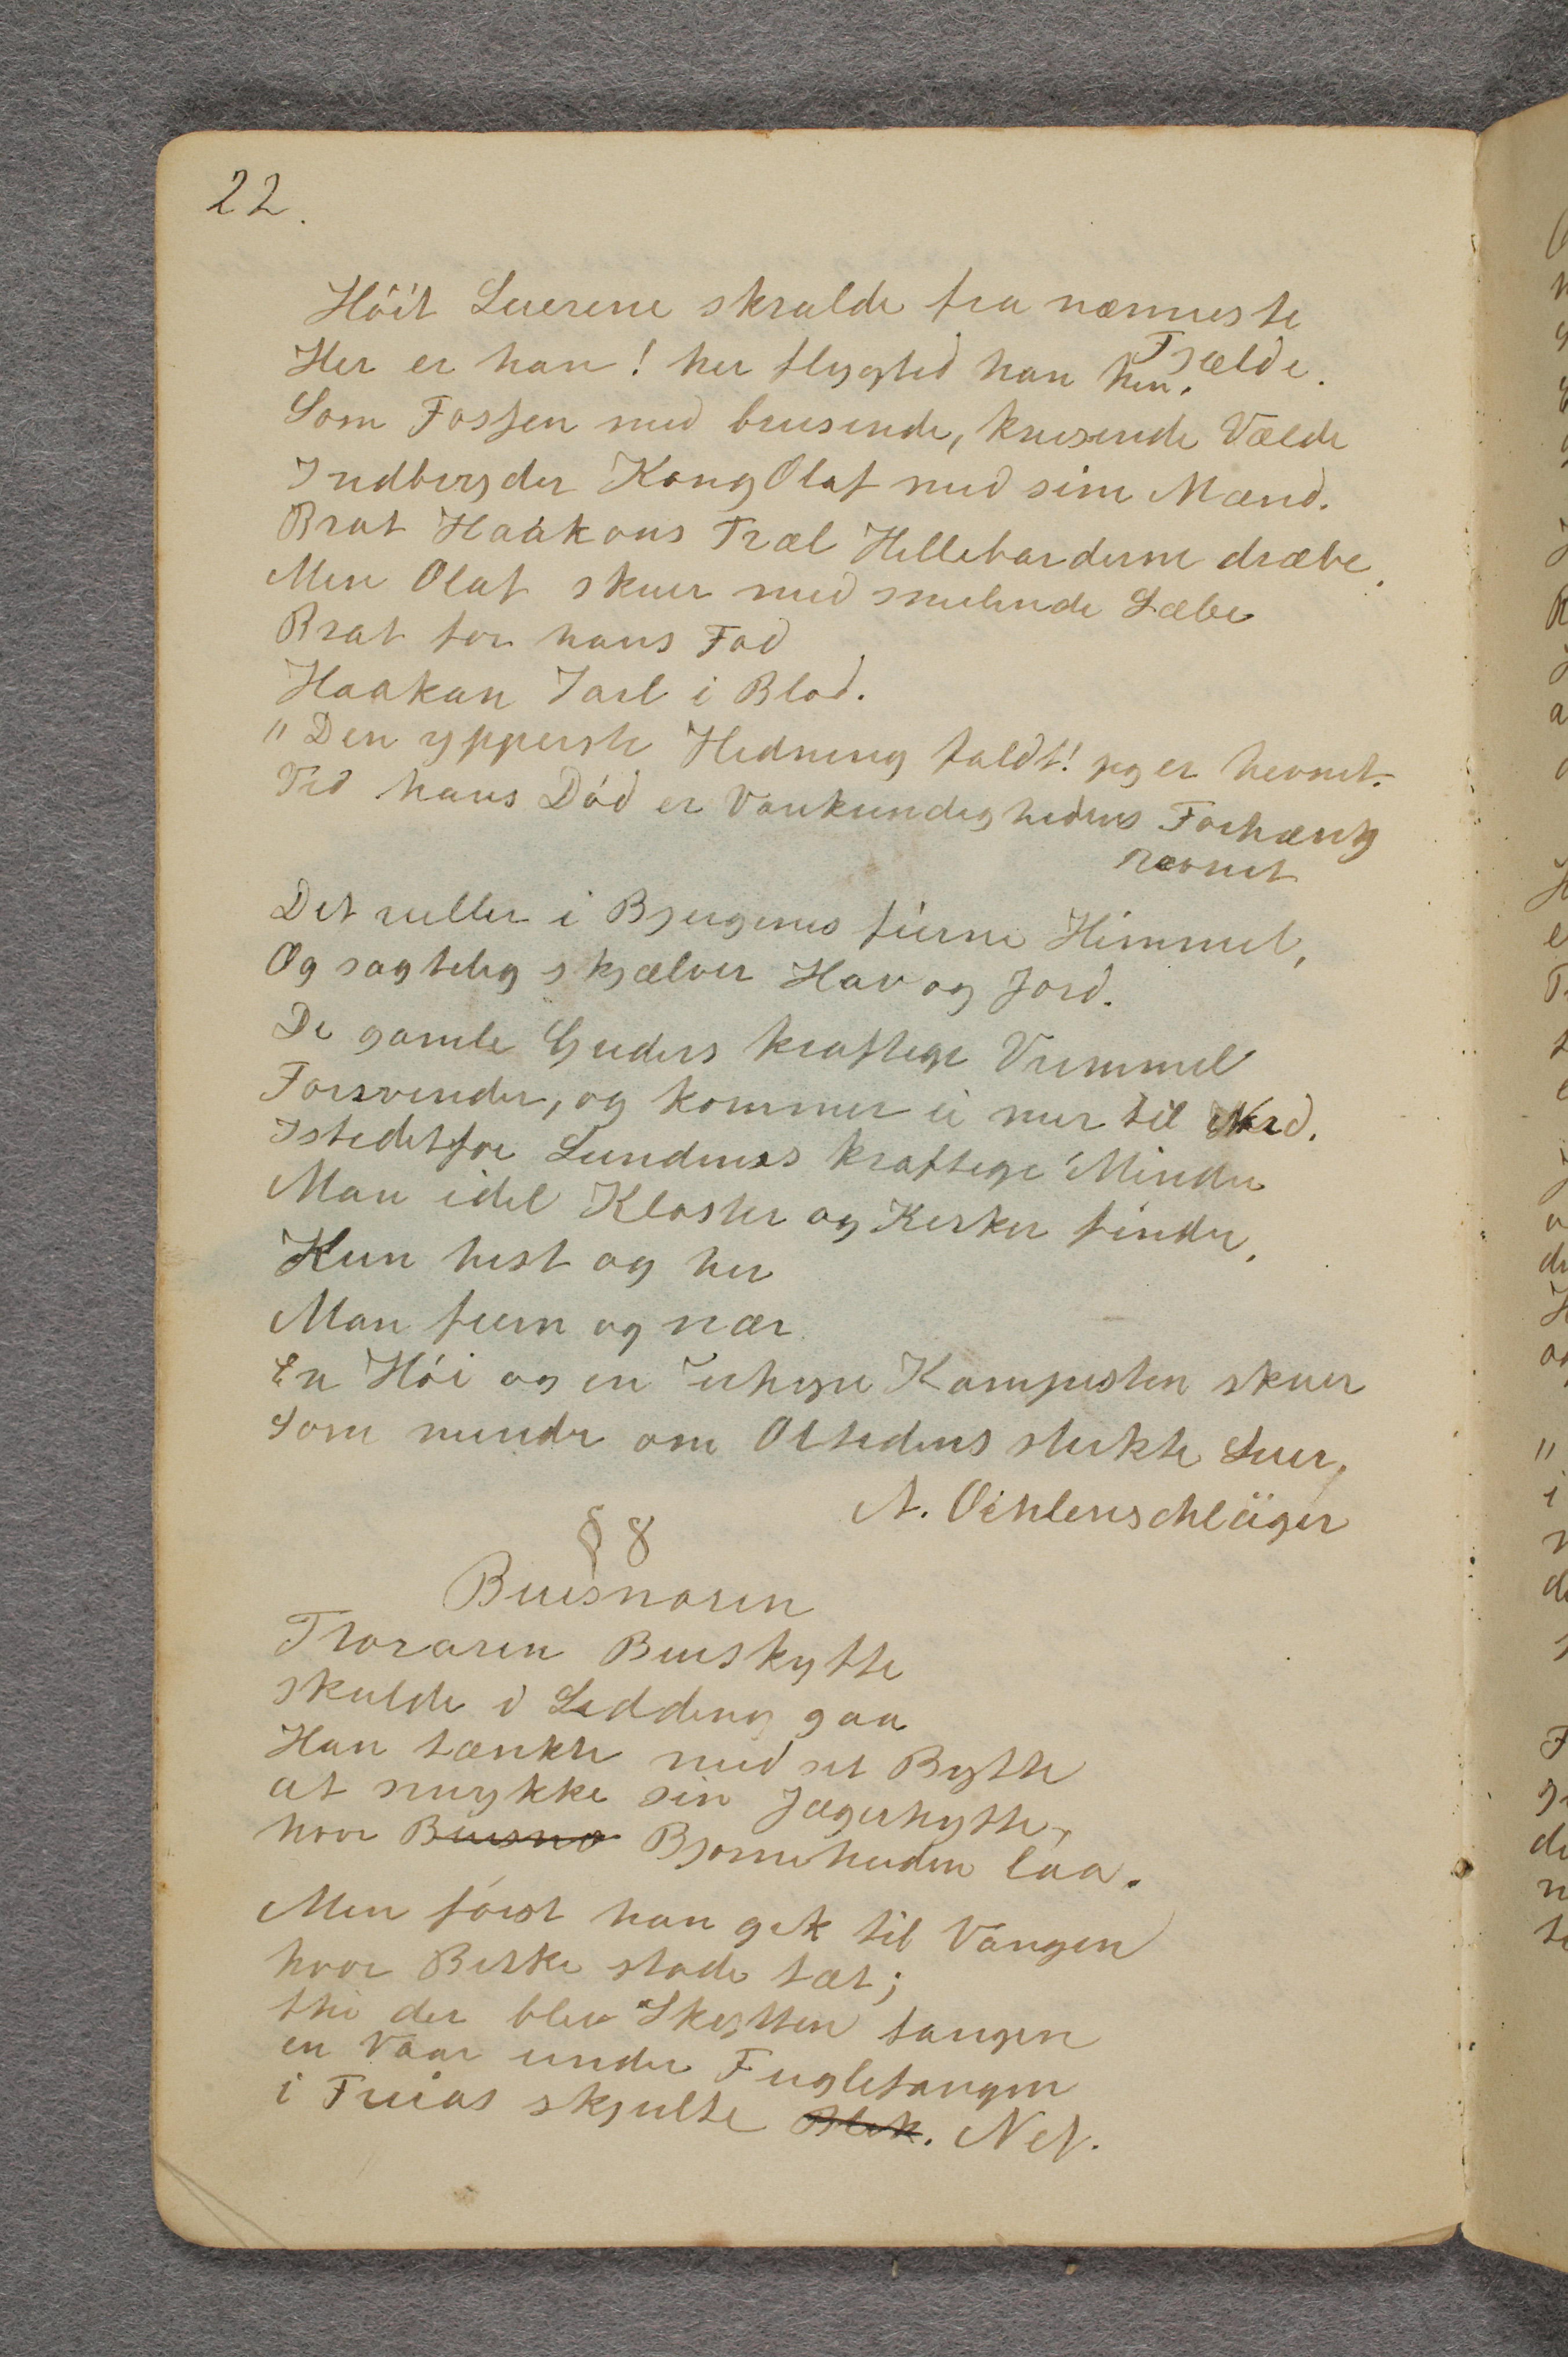 22.
Höit Luerene skralde fra nærmeste
Fjælde.
Her er han! her flygted han hen.
Som Fossen med brusende, knusende Vælde
Indbryder Kong Olaf med sine Mænd.
Brat Haakons Træl Hellebarderne dræbe.
Men Olaf skuer med smilende Læbe
Brat for hans Fod
Haakan Jarl i Blod.
"Den ypperste Hedning faldt! jeg er hevnet.
Ved hans Död er Vankundighedens Forhæng
revnet
Det ruller i Bjergenes fierne Himmel,
Og sagtelig skjælver Hav og Jord.
De gamle Guders kraftige Vrimmel
Forsvinder, og kommer ei mer til Nord.
Istedetfor Lundenes kraftige Minder
Man idel Kloster og Kirker finder,
Kun hist og her
Man fiern og nær
En Höi og en uhyre Kampesten skuer
Som minder om Oltidens slukte Luer.
A. Oehlenschläger
§ 8
Buesnoren
Thoraren Bueskytte
skulde i Ledding gaa
Han tænkte med sit Bytte
at smykke sin Jægerhytte,
hvor Buesno Bjørnehuden laa.
Men först han gik til Vangen
hvor Birke stode tæt;
thi der blev Skytten fangen
en Vaar under Fuglesangen
i Freias skjulte Blik. Net.